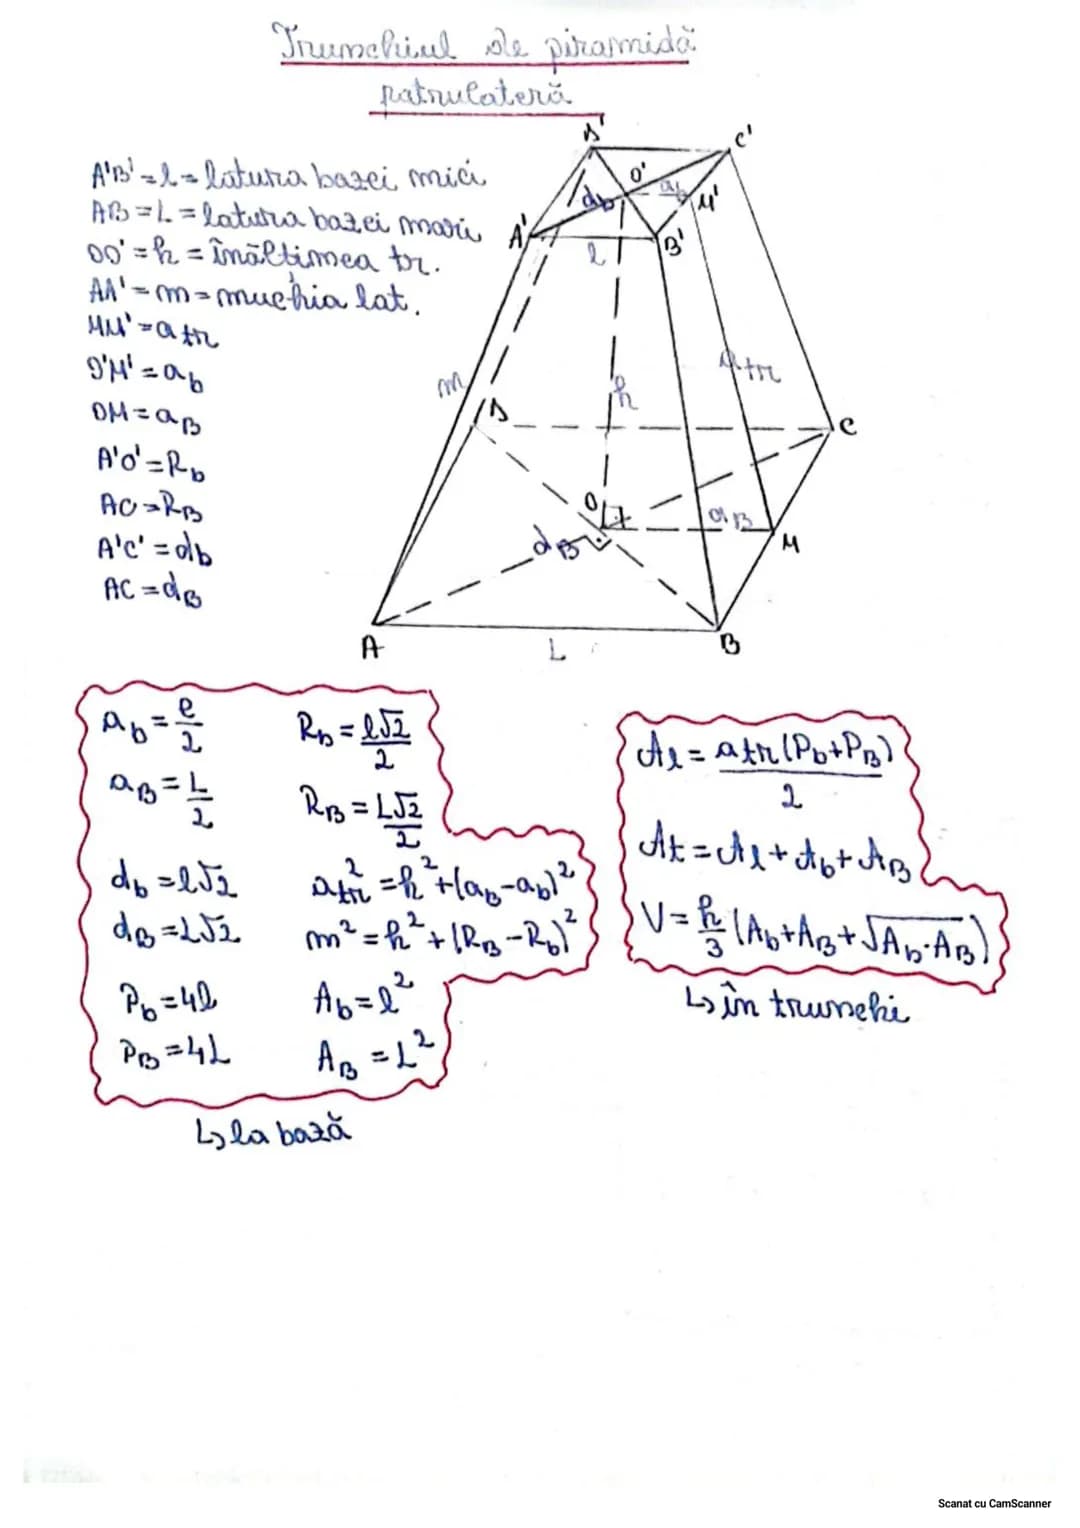 Trunchiul de piramidă
patrulateră
A'B' = l = latura bazei mici
AB = L = latura bazei mari
OO' = h = înălțimea tr.
AA' = m = muchia lat.
MM' = a tr
O'M' = a_b
OM = a_B
A'O' = R_b
AO = R_B
A'C' = d_b
AC = d_B
D'
C'
O'
d_b
a_b
M'
A'
l
B'
m
h
a tr
D
C
O
a_B
d_B
M
A
L
B
a_b = l/2
R_b = l√2/2
a_B = L/2
R_B = L√2/2
d_b = l√2
a_tr² = h² + (a_B - a_b)²
d_B = L√2
m² = h² + (R_B - R_b)²
P_b = 4l
A_b = l²
P_B = 4L
A_B = L²
↳ la bază
A_l = a tr (P_b + P_B)/2
A_t = A_l + A_b + A_B
V = h/3 (A_b + A_B + √A_b·A_B)
↳ în trunchi
Scanat cu CamScanner